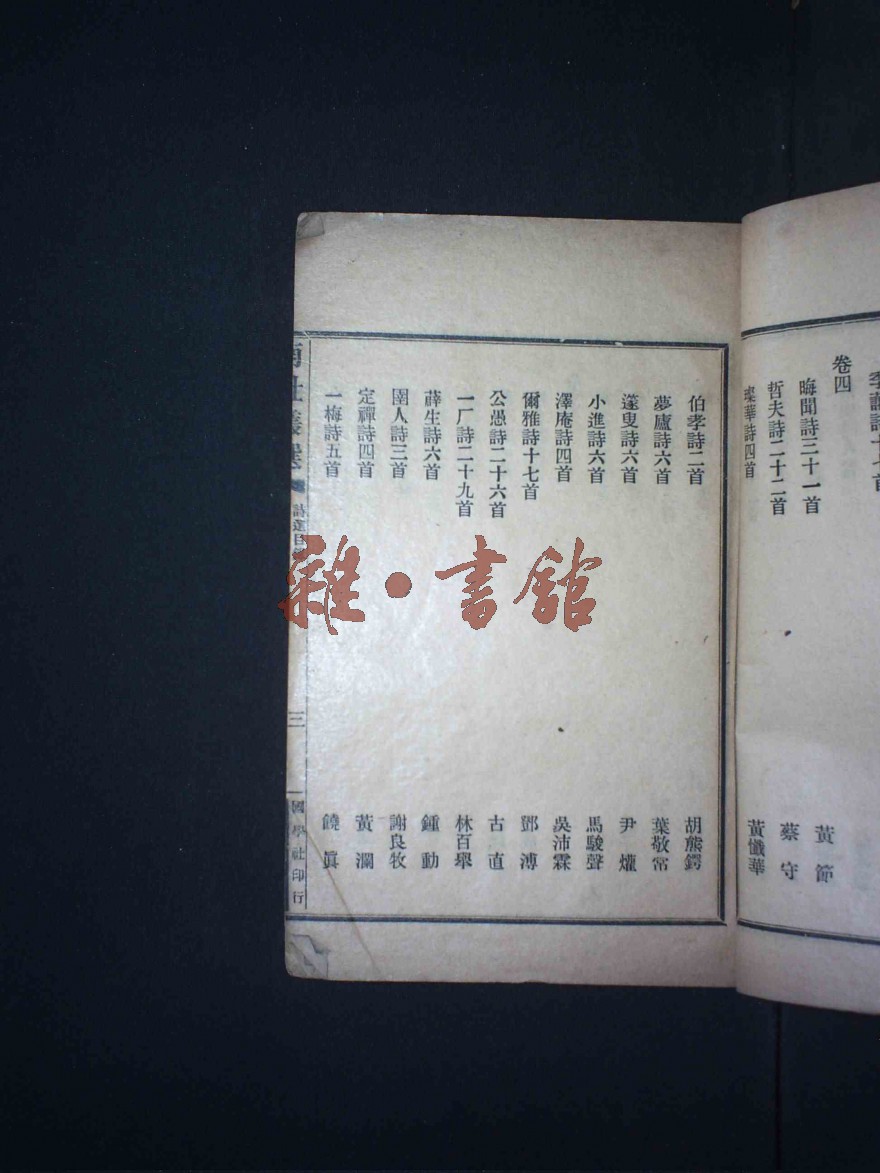 卷四
晦聞詩三十一首 黃節
哲夫詩二十二首 蔡守
璨華詩四首 黃懺華
伯孝詩二首 胡熊鍔
夢廬詩六首 葉敬常
蓬叟詩六首 尹爟
小進詩六首 馬駿聲
澤庵詩四首 吳沛霖
爾雅詩十七首 鄧溥
公愚詩二十六首 古直
一厂詩二十九首 林百舉
薜生詩六首 鍾動
圉人詩三首 謝良牧
定禪詩四首 黃瀾
一梅詩五首 饒眞
南社叢選
詩選目
三
國學社印行
雜·書館